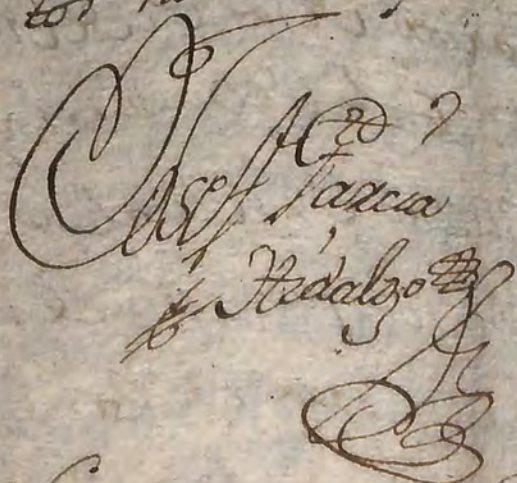 Josef Garcia
Hidalgo